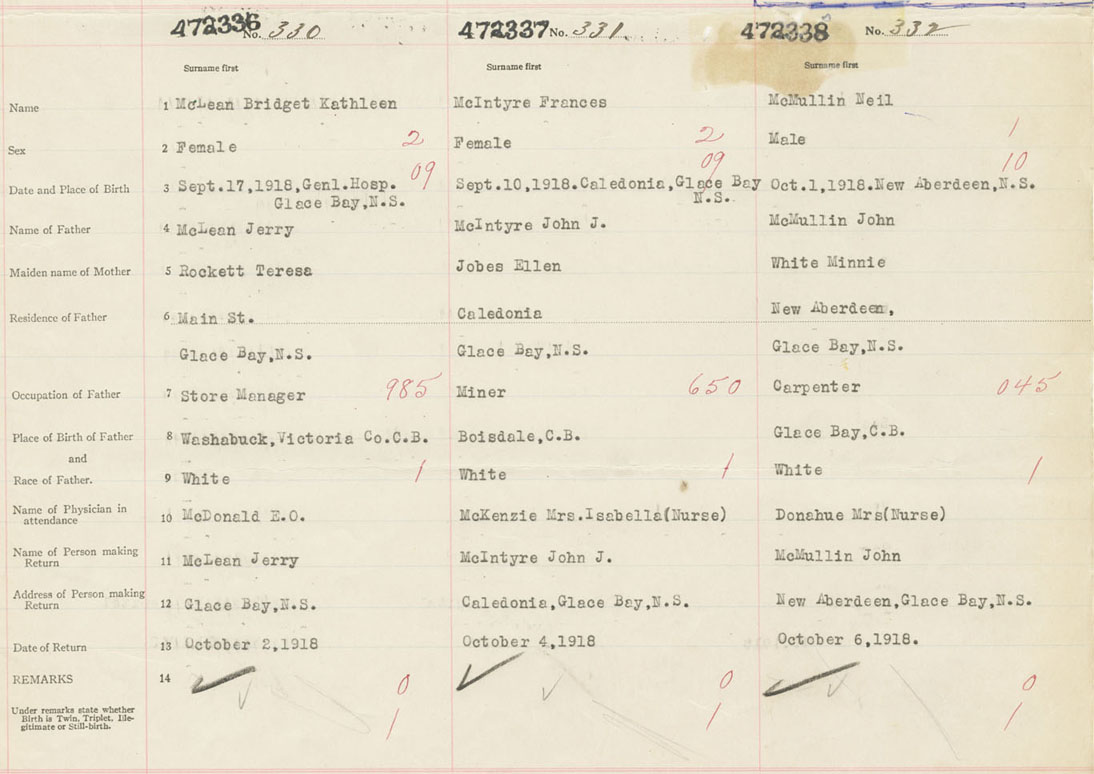 472336 No. 330 472337 No. 331. 472338 No. 332
Surname first Surname first Surname first
Name 1 McLean Bridget Kathleen McIntyre Frances McMullin Neil
Sex 2 Female 2 Female 2 Male 1
Date and Place of Birth 3 Sept.17,1918,Genl.Hosp. 09 Sept.10,1918.Caledonia,Glace Bay 09 Oct.1,1918.New Aberdeen,N.S. 10
Glace Bay,N.S. N.S.
Name of Father 4 McLean Jerry McIntyre John J. McMullin John
Maiden name of Mother 5 Rockett Teresa Jobes Ellen White Minnie
Residence of Father 6 Main St. Caledonia New Aberdeen,
Glace Bay,N.S. Glace Bay,N.S. Glace Bay,N.S.
Occupation of Father 7 Store Manager 985 Miner 650 Carpenter 045
Place of Birth of Father 8 Washabuck,Victoria Co.C.B. Boisdale,C.B. Glace Bay,C.B.
and
Race of Father. 9 White 1 White 1 White 1
Name of Physician in
attendance 10 McDonald E.O. McKenzie Mrs.Isabella(Nurse) Donahue Mrs(Nurse)
Name of Person making
Return 11 McLean Jerry McIntyre John J. McMullin John
Address of Person making
Return 12 Glace Bay,N.S. Caledonia,Glace Bay,N.S. New Aberdeen,Glace Bay,N.S.
Date of Return 13 October 2,1918 October 4,1918 October 6,1918.
REMARKS 14 0 0 0
Under remarks state whether
Birth is Twin, Triplet, Ille-
gitimate or Still-birth. 1 1 1